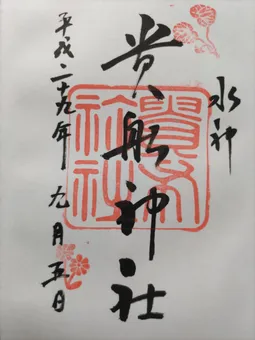 水神
貴船神社
平成二十九年九月五日